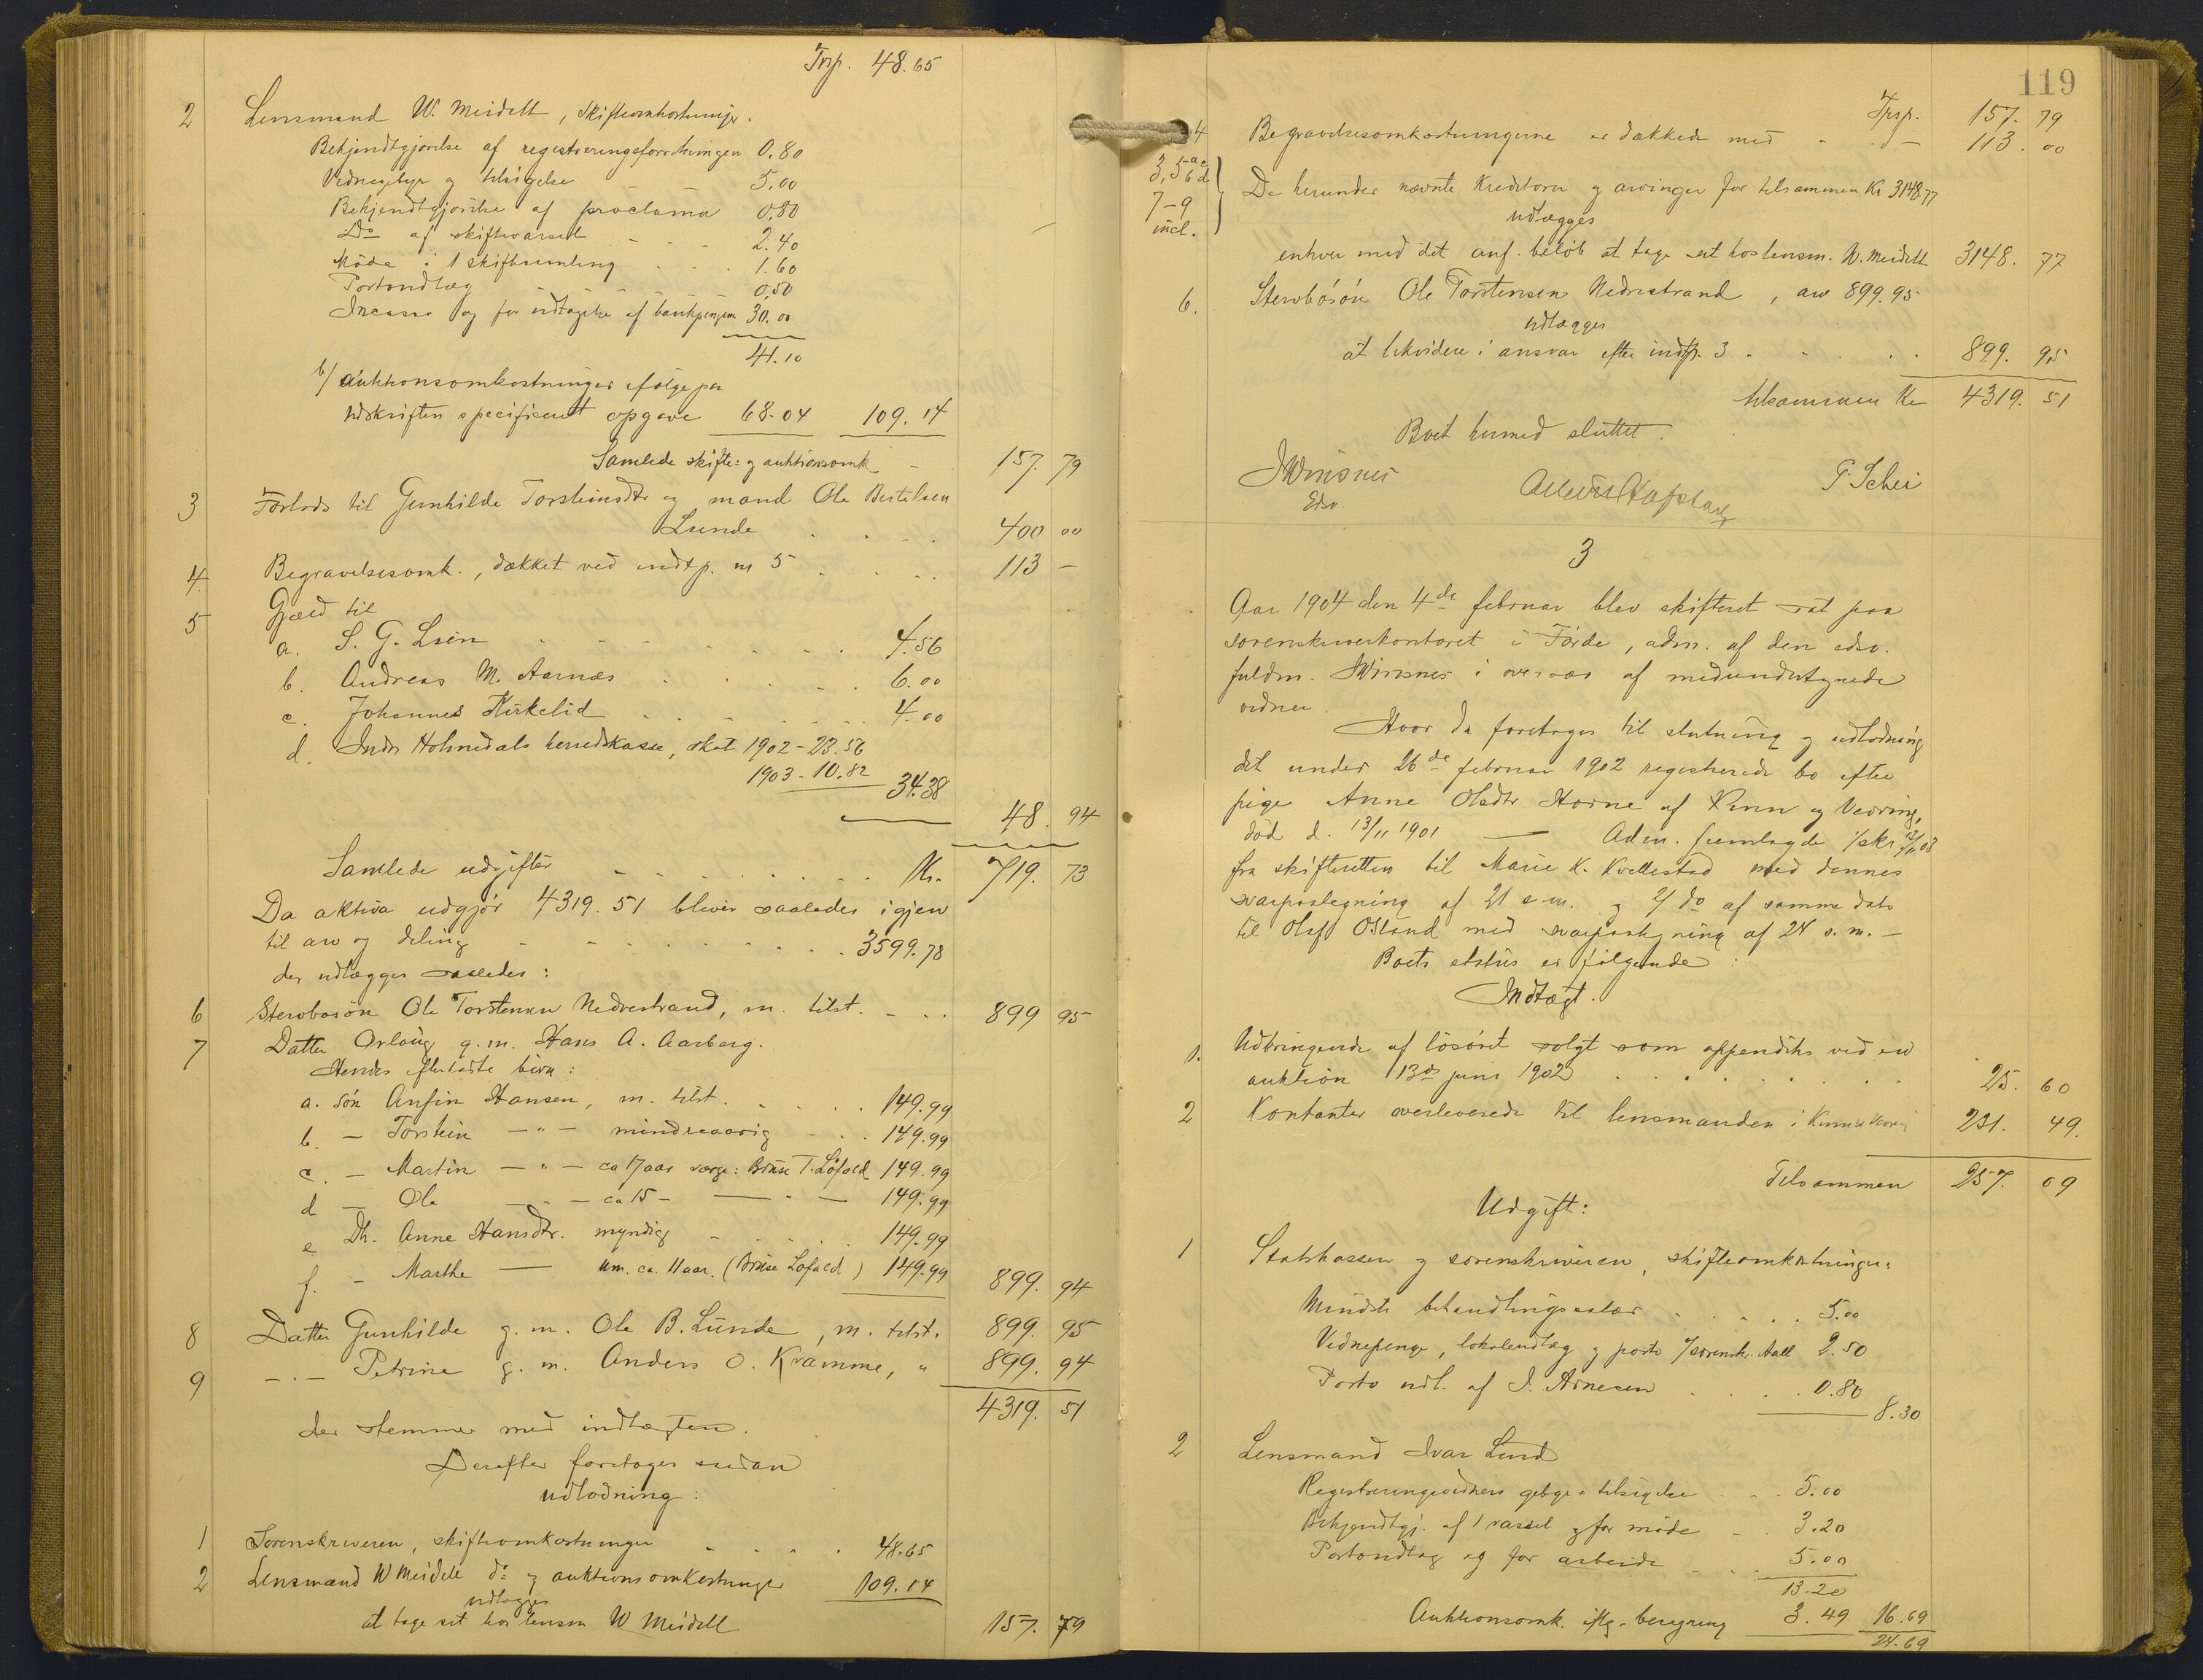 Trsp. 48.65
2 Lensmand W. Meidell, Skifteomkostninger.
Bekjendtgjørelse af registreringsforretningen 0.80
Vidnegebyr og tilsigelse 5.00
Bekjendtgjørelse af proclama 0.80
Do af skiftevarsel 2.40
Møde i 1 skiftesamling 1.60
Portoudlæg 0.50
Incasso og for udtagelse af bankpengene 30.00
41.10
b/ auktionsomkostninger ifølge paa
udskriften specificeret opgave 68.04 109.14
Samlede skifte- og auktionsomk. 157.79
3 Forlods til Gunhilde Torsteinsdtr og mand Ole Bertelsen
Lunde 400 00
4. Begravelsesomk., dækket ved indtp. no 5 113 —
5 Gjæld til
a. S. G. Lien 4.56
b. Andreas M. Aarnæs 6.00
c. Johannes Kirkelid 4.00
d. Indre Holmedals herredskasse, skat 1902 - 23.56
1903 - 10.82 34.38
48. 94
Samlede udgifter Kr. 719. 73
Da aktiva udgjør 4319.51 bliver saaledes igjen
til arv og deling 3599.78
der udlægges saaledes:
6 Stervbosøn Ole Torstensen Nedrestrand, m. tilst. 899 95
7 Datter Orlaug g. m. Hans A. Aarberg.
Hendes efterladte børn:
a. søn Anfin Hansen, m. tilst. 149.99
b. — Torstein — " — mindreaarig 149.99
c. — Martin — " — ca 17 aar værge: Brüse T. Løfald 149.99
d — Ole — " — ca 15 — — " — 149.99
e Dtr. Anne Hansdtr. myndig 149.99
f. — Marthe — um. ca. 11 aar. (Brüse Løfald) 149.99 899. 94
8 Datter Gunhilde g. m. Ole B. Lunde, m. tilst. 899. 95
9 — " — Petrine g. m. Anders O. Kramme, " 899. 94
4319. 51
der stemmer med indtægten.
Derefter foretages sådan
udlodning:
1 Sorenskriveren, skifteomkostninger 48.65
2 Lensmand W Meidell do og auktionsomkostninger 109.14
udlægges
at tage sit hos lensm W Meidell 157. 79
119
Trsp. 157. 79
4 Begravelsesomkostningerne er dækkede med — 113. 00
3, 5 a-d
7-9
incl.
De herunder nævnte Kreditorer og arvinger for tilsammen Kr 3148.77
udlægges
enhver med det anf. beløb at tage sit hos lensm. W. Meidell 3148. 77
6. Stervbosøn Ole Torstensen Nedrestrand, arv 899.95
udlægges
at likvidere i ansvar efter indtp. 3 899. 95
tilsammen Kr 4319. 51
Boet hermed sluttet.
JWinsnes
Edsv.
P. Schei
3
Aar 1904 den 4de februar blev skifteret sat paa
sorenskriverkontoret i Førde, adm. af den edsv.
fuldm. Winsnes i overvær af medundertegnede
vidner.
Hvor da foretages til slutning og udlodning
det under 26de februar 1902 registrerede bo efter
pige Anne Olsdtr Horne af Kinn og Vevring,
død d. 13/11 1901 — Adm. fremlagde 1/ skr.
fra skifteretten til Marie K. Kvellestad med dennes
svarpaategning af 21 s. m. og 2/ do af samme dato
til Olaf Osland med svarpaategning af 24 s. m. —
Boets status er følgende:
Indtægt.
1. Udbringende af løsøret solgt som appendiks ved en
auktion 13de juni 1902 25. 60
2 Kontanter overleverede til lensmanden i Kinn & Vevring 231. 49.
Tilsammen 257. 09
Udgift:
1 Statskassen og sorenskriveren, skifteomkostninger:
Mindste behandlingssalær 5.00
Vidnepenge, lokaleudlæg og porto t/ sorenskr. Aall 2.50
Porto udl. af J. Arnesen 0.80
8.30
2 Lensmand Ivar Lund
Registreringsvidners gebyr + tilsigelse 5.00
Bekjendtgj. af 1 varsel og for møde 3.20
Portoudlæg og for arbeide 5.00
13.20
Auktionsomk. iflg. beregning 3.49 16.69
24.69